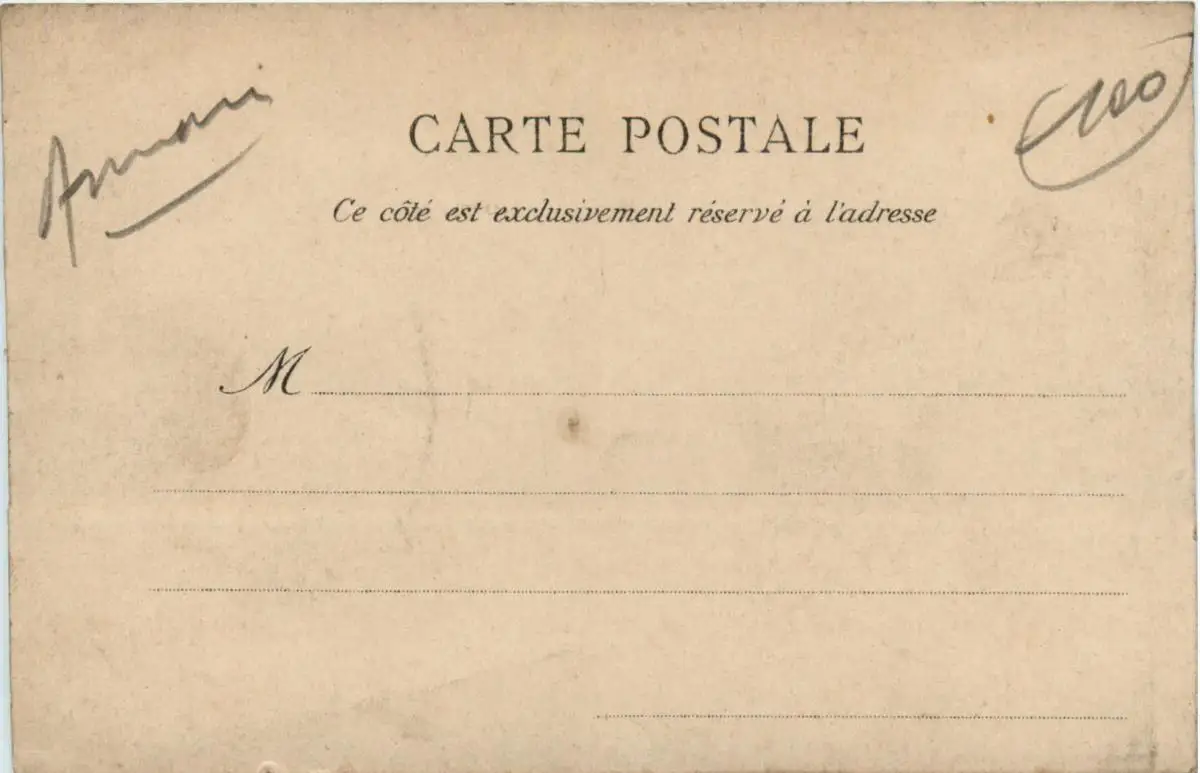 Annam
100
CARTE POSTALE
Ce côté est exclusivement réservé à l'adresse
M